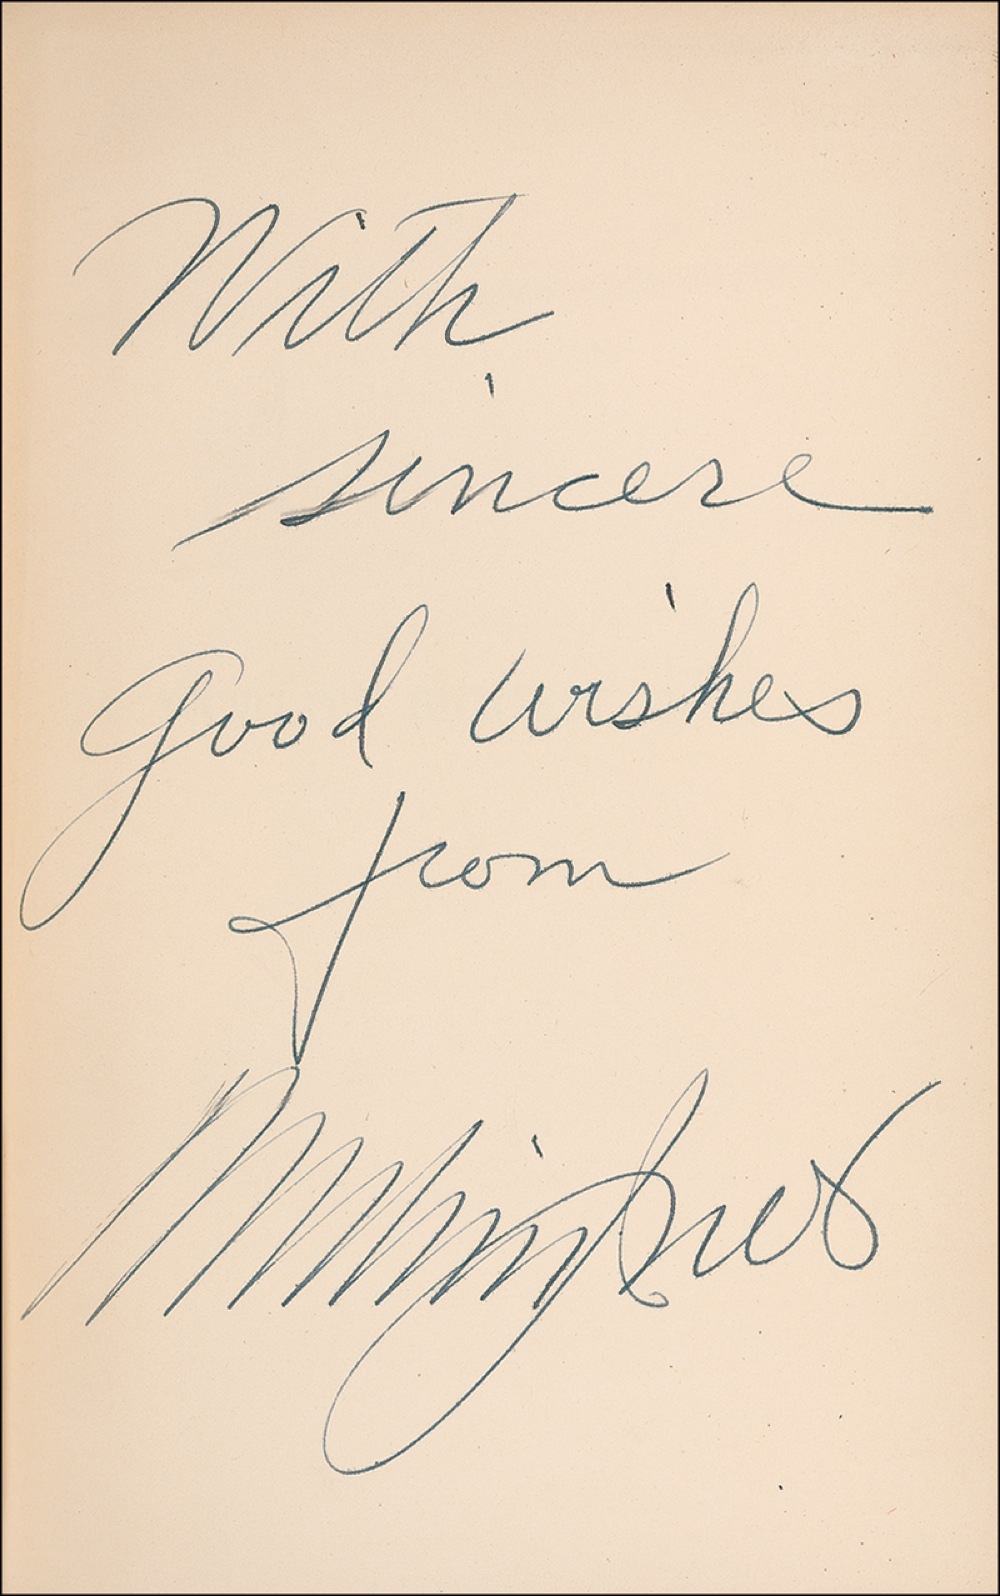 With
sincere
good wishes
from